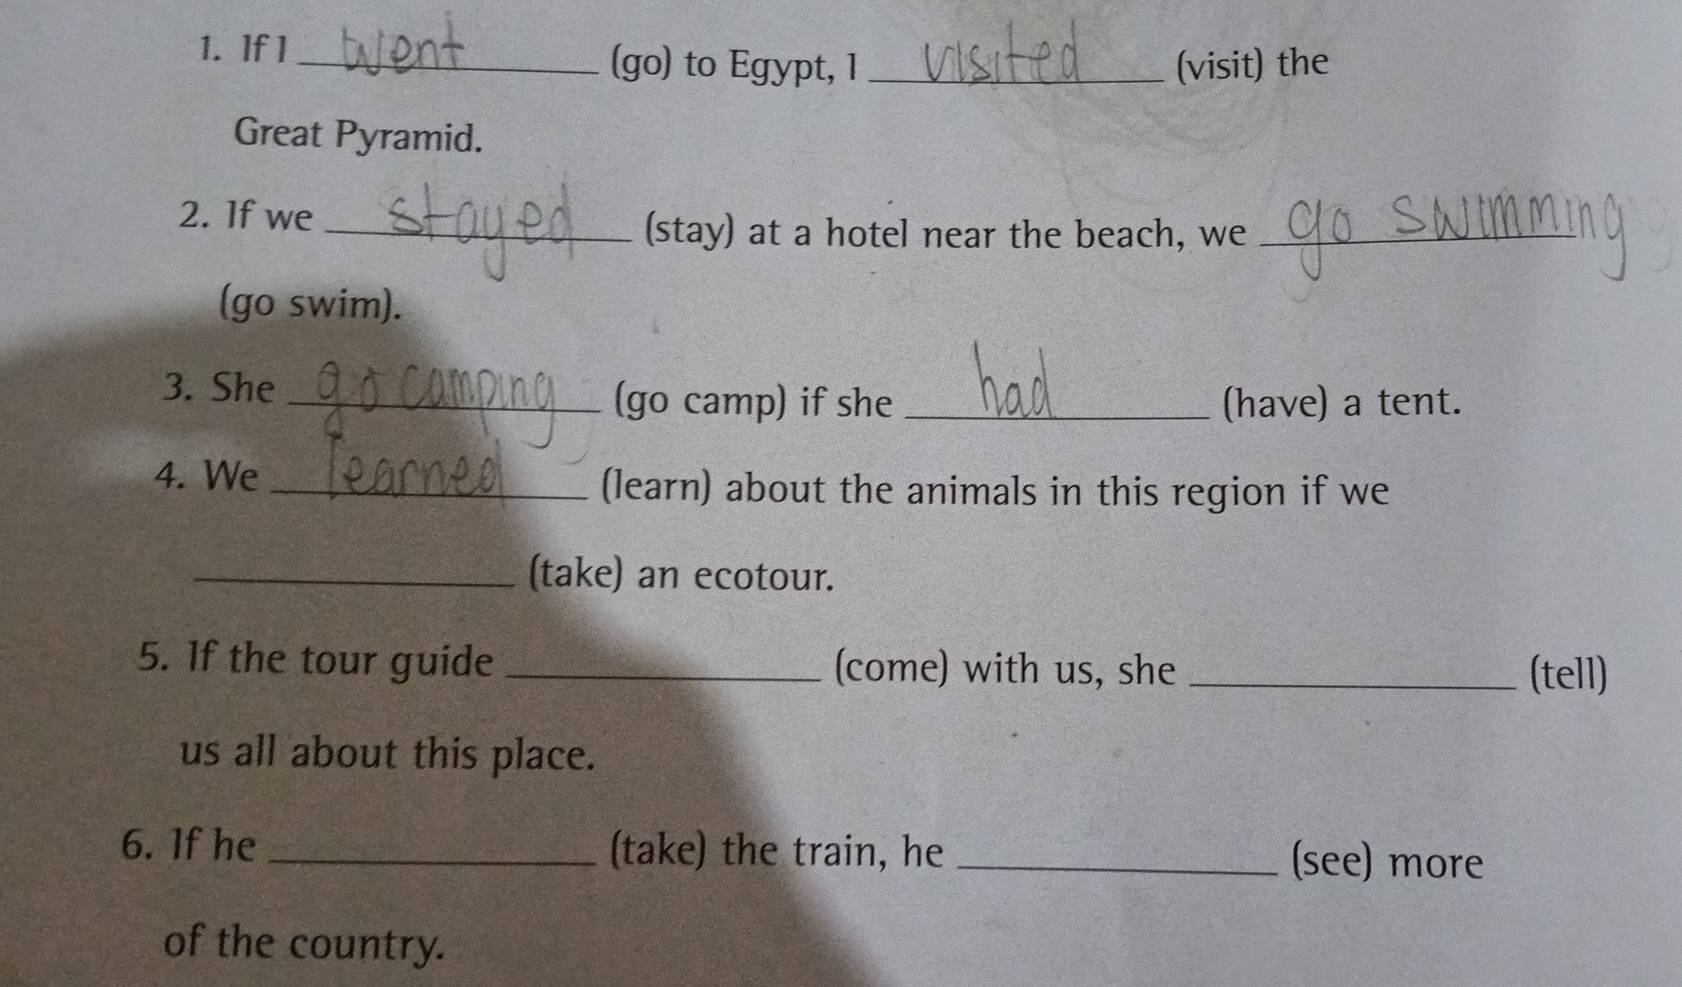 1. If I went (go) to Egypt, I visited (visit) the
Great Pyramid.
2. If we stayed (stay) at a hotel near the beach, we go swimming
(go swim).
3. She go camping (go camp) if she had (have) a tent.
4. We learned (learn) about the animals in this region if we
(take) an ecotour.
5. If the tour guide (come) with us, she (tell)
us all about this place.
6. If he (take) the train, he (see) more
of the country.